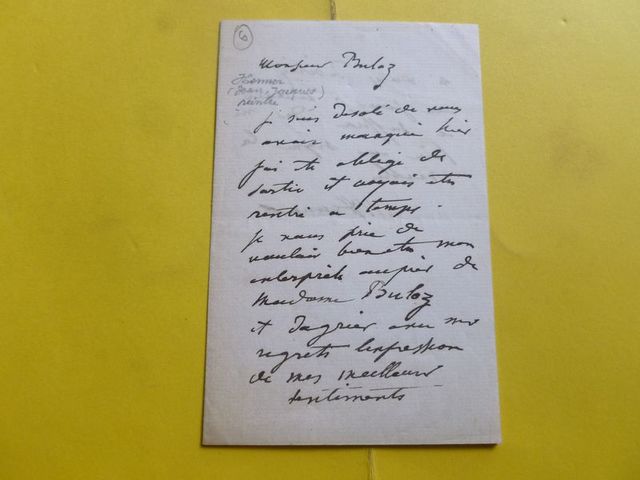 6
Monsieur Buloz
Henner
(Jean-Jacques)
peintre
je suis désolé de vous
avoir manqué hier
j'ai été obligé de
sortir et croyais être
rentré à temps.
Je vous prie de
vouloir bien être mon
interprète auprès de
Madame Buloz
et d'agréer avec mes
regrets l'expression
de mes meilleurs
sentiments